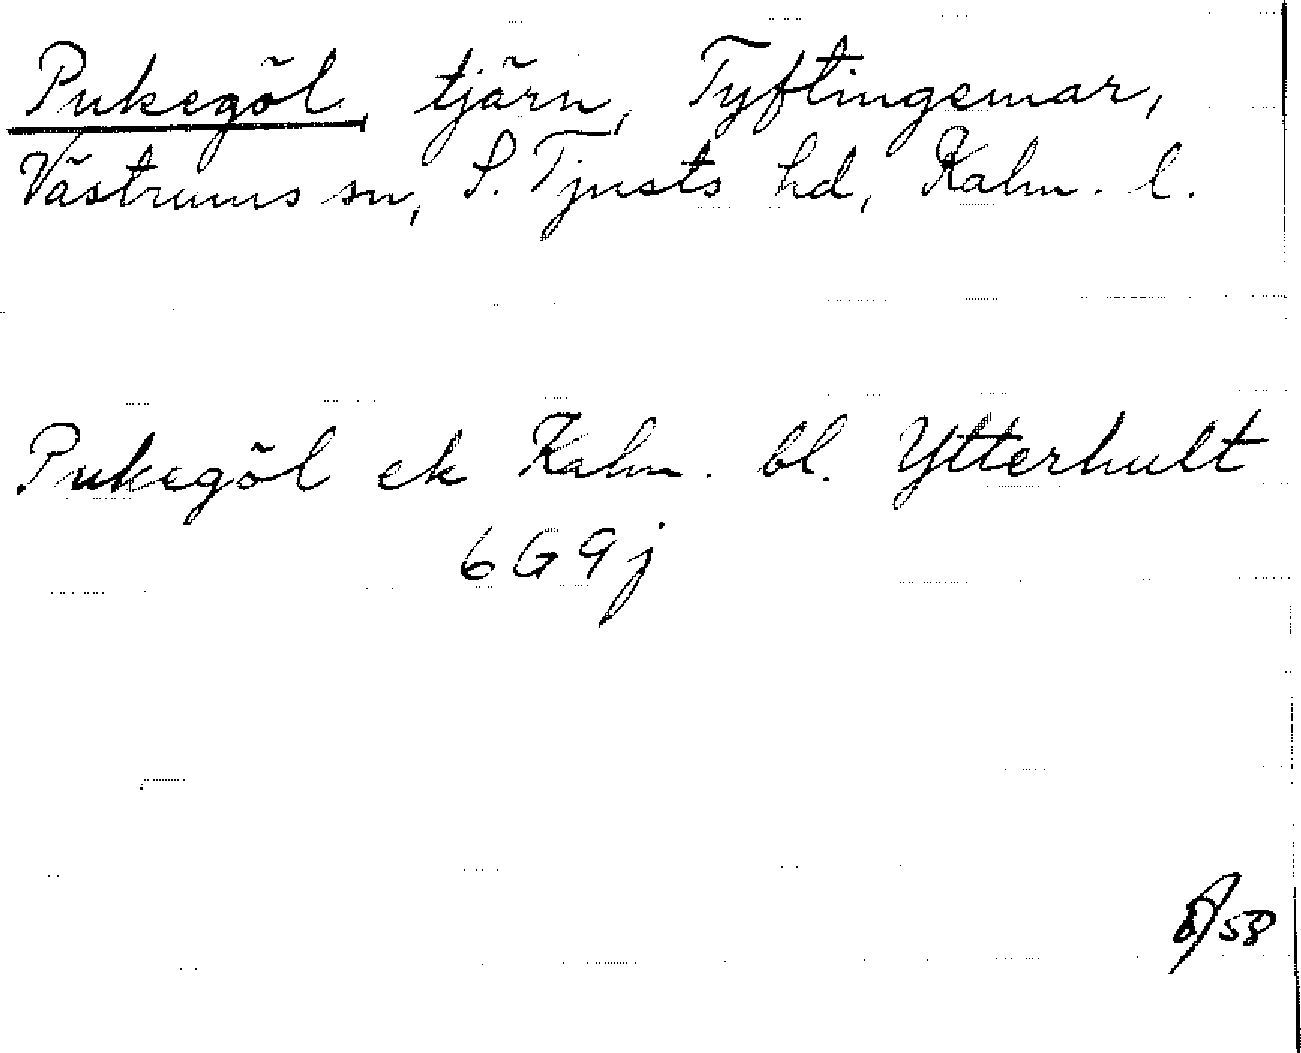 Pukegöl, tjärn, Tyftingemar,
Västrums sn, S. Tjusts hd, Kalm. l.
Pukegöl ek Kalm. bl. Ytterhult
6G9j